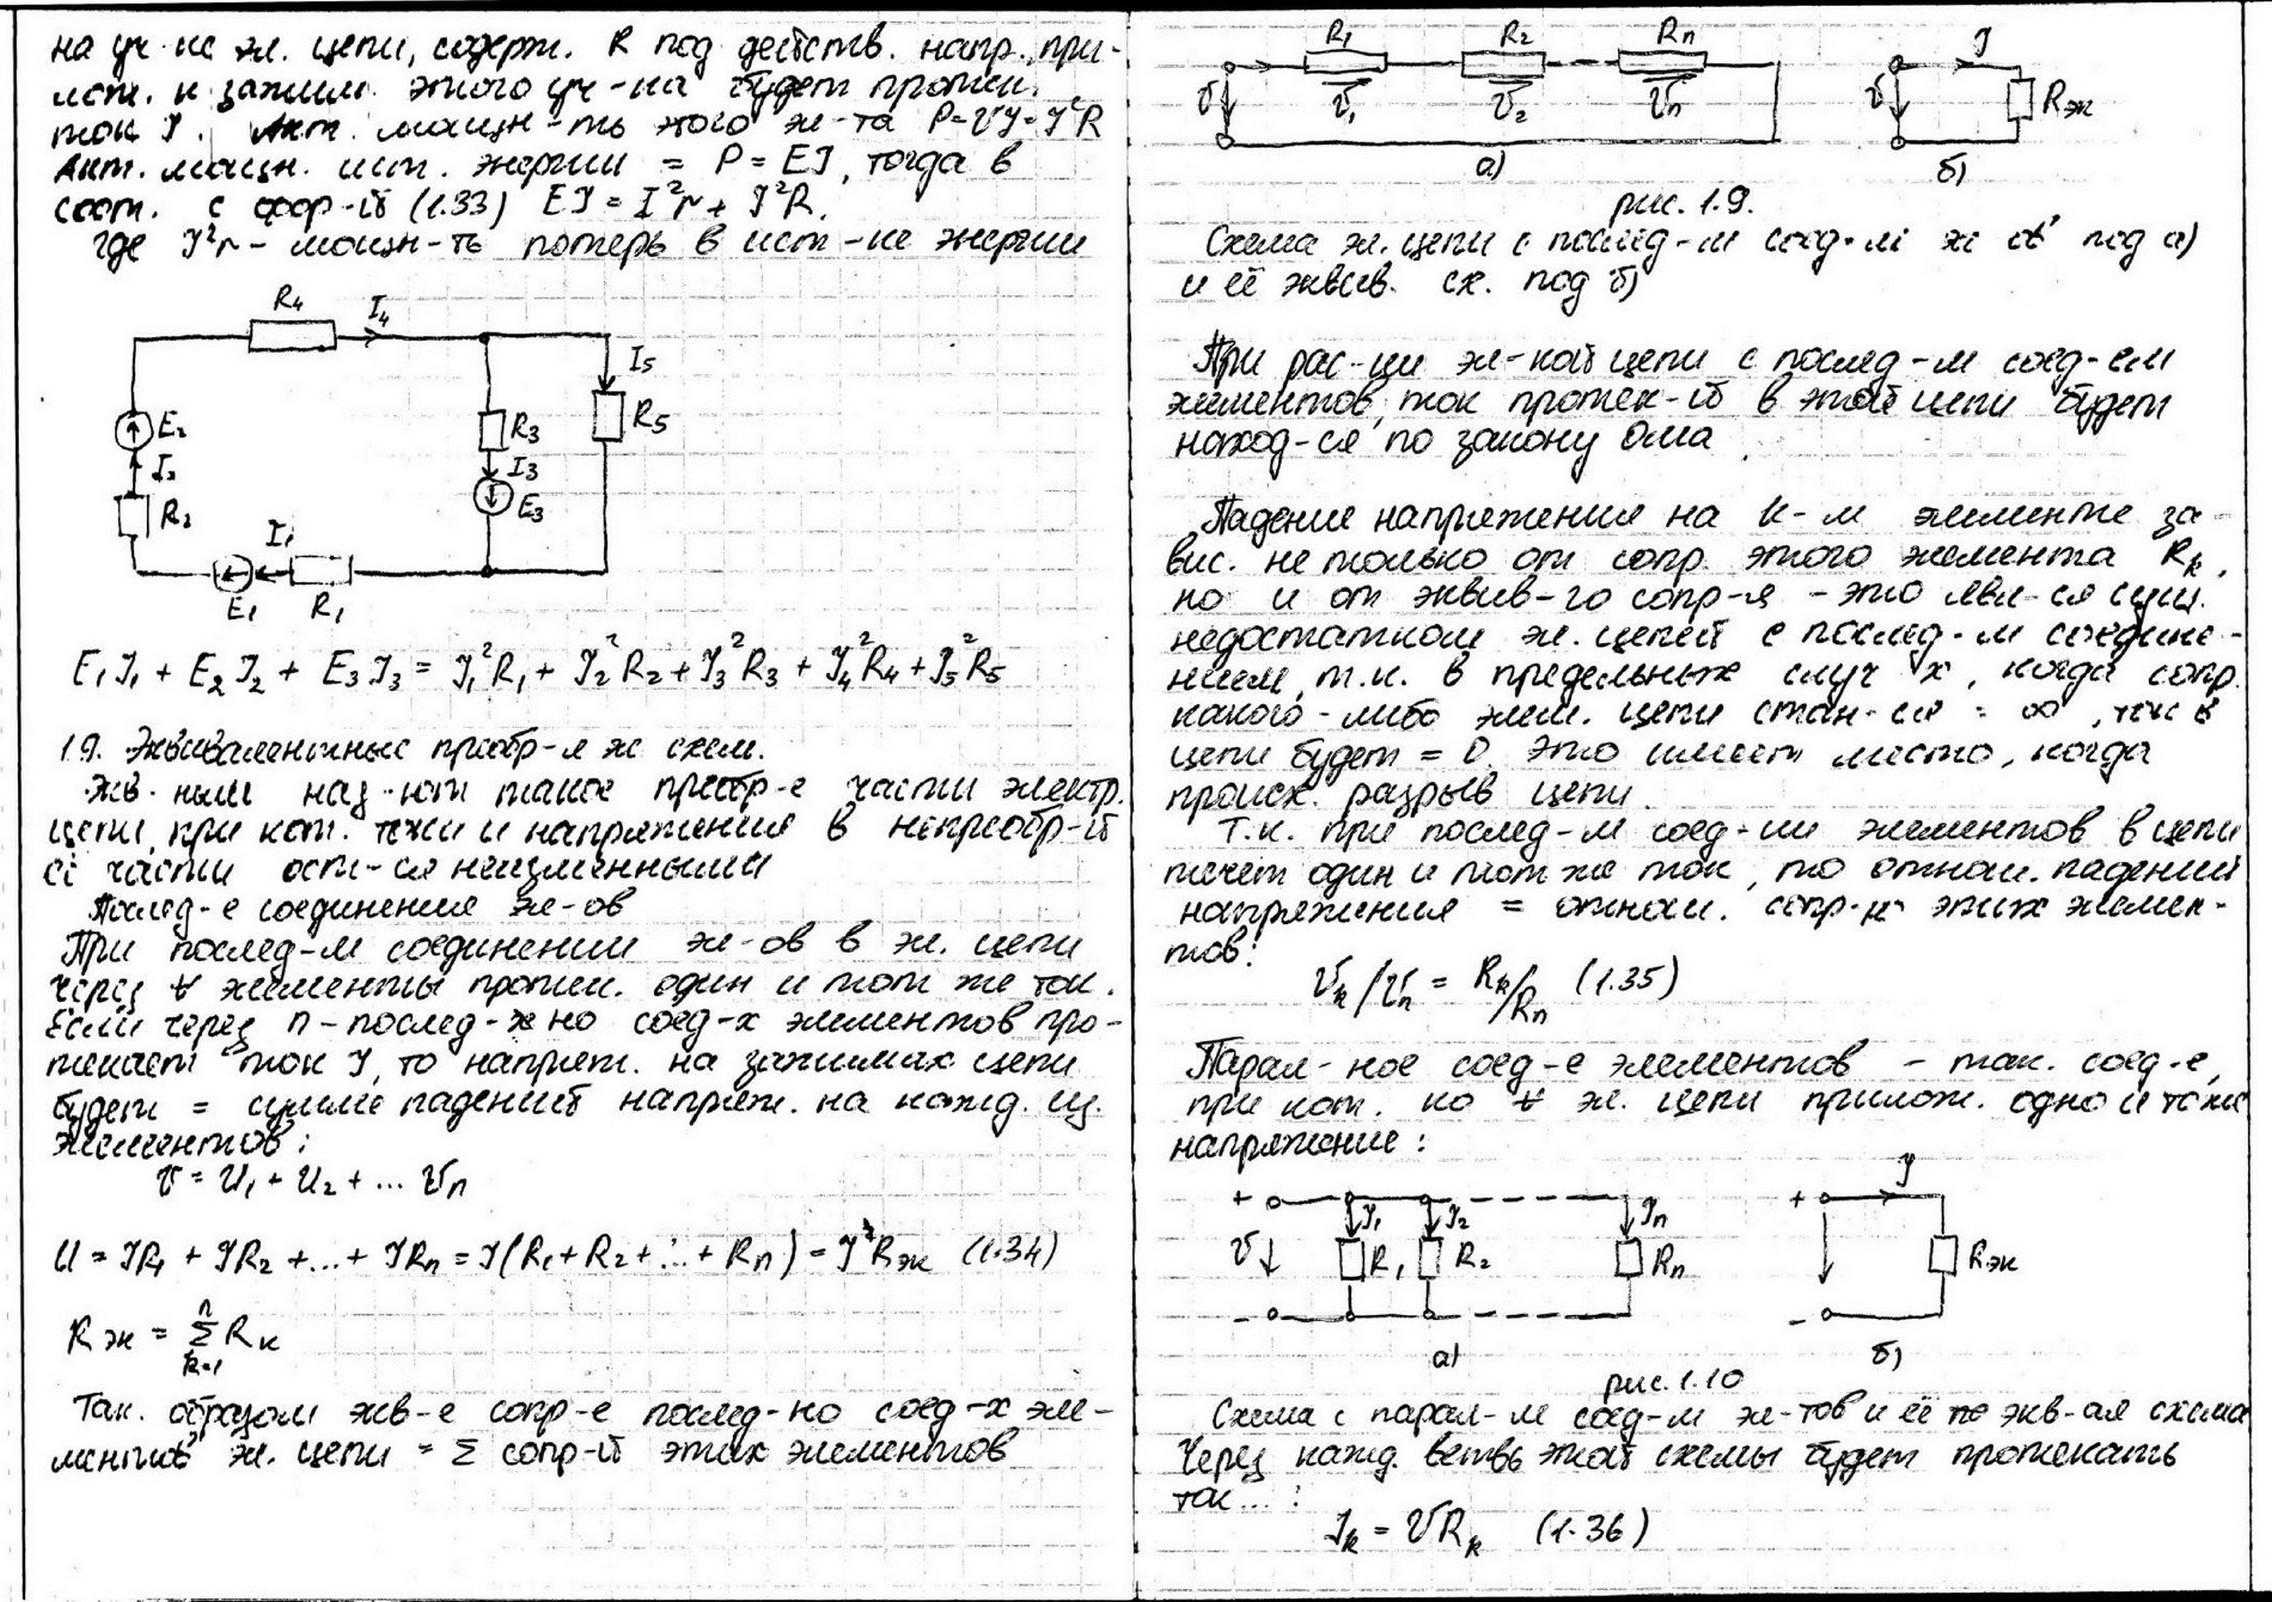 на уч-ке эл. цепи, содерж. R под действ. напр., при-
лож. к зажим. этого уч-ка будет протек.
ток I. Акт. мощн-ть этого эл-та P=UI=I²R
Акт. мощн. ист. энергии = P = EI, тогда в
соот. с фор-й (1.33) EI = I²r + I²R.
где I²r - мощн-ть потерь в ист-ке энергии
R4
I4
I5
R3
R5
E2
I3
I2
E3
R2
I1
E1 R1
E1I1 + E2I2 + E3I3 = I1²R1 + I2²R2 + I3²R3 + I4²R4 + I5²R5
1.9. Эквивалентные преобр-я эл схем.
Экв-ными наз-ют такое преобр-е части электр.
цепи, при кот. токи и напряжения в непреобр-й
её части ост-ся неизменными
Послед-е соединение эл-ов
При послед-м соединении эл-ов в эл. цепи
через ∀ элементы протек. один и тот же ток.
Если через n-послед-но соед-х элементов про-
текает ток I, то напряж. на зажимах цепи
будет = сумме падений напряж. на кажд. из
элементов:
U = U1 + U2 + ... Un
U = IR1 + IR2 + ... + IRn = I(R1 + R2 + ... + Rn) = I²Rэк (1.34)
Rэк = n Σ k=1 Rк
Так. образом экв-е сопр-е послед-но соед-х эле-
ментов эл. цепи = Σ сопр-й этих элементов
R1 R2 Rn I
U U1 U2 Un U Rэк
а) б)
рис. 1.9.
Схема эл. цепи с послед-м соед-м эл ов под а)
и её эквив. сх. под б)
При рас-ии эл-кой цепи с послед-м соед-ем
элементов, ток протек-й в этой цепи будет
наход-ся по закону Ома
Падение напряжения на к-м элементе за-
вис. не только от сопр. этого элемента Rk,
но и от эквив-го сопр-я - это явл-ся сущ.
недостатком эл. цепей с послед-м соедине-
нием, т.к. в предельных случ х, когда сопр.
какого-либо элем. цепи стан-ся = ∞, ток в
цепи будет = 0. Это имеет место, когда
происх. разрыв цепи.
Т.к. при послед-м соед-ии элементов в цепи
течет один и тот же ток, то отнош. падений
напряжения = отнош. сопр-й этих элемен-
тов:
Uk/Un = Rk/Rn (1.35)
Парал-ное соед-е элементов - так. соед-е,
при кот. ко ∀ эл. цепи прилож. одно и тоже
напряжение:
+ I1 I2 In + I
U R1 R2 Rn Rэк
- -
а) б)
рис. 1.10
Схема с парал-м соед-м эл-тов и её экв-ая схема
Через кажд. ветвь этой схемы будет протекать
ток...:
Ik = URk (1.36)